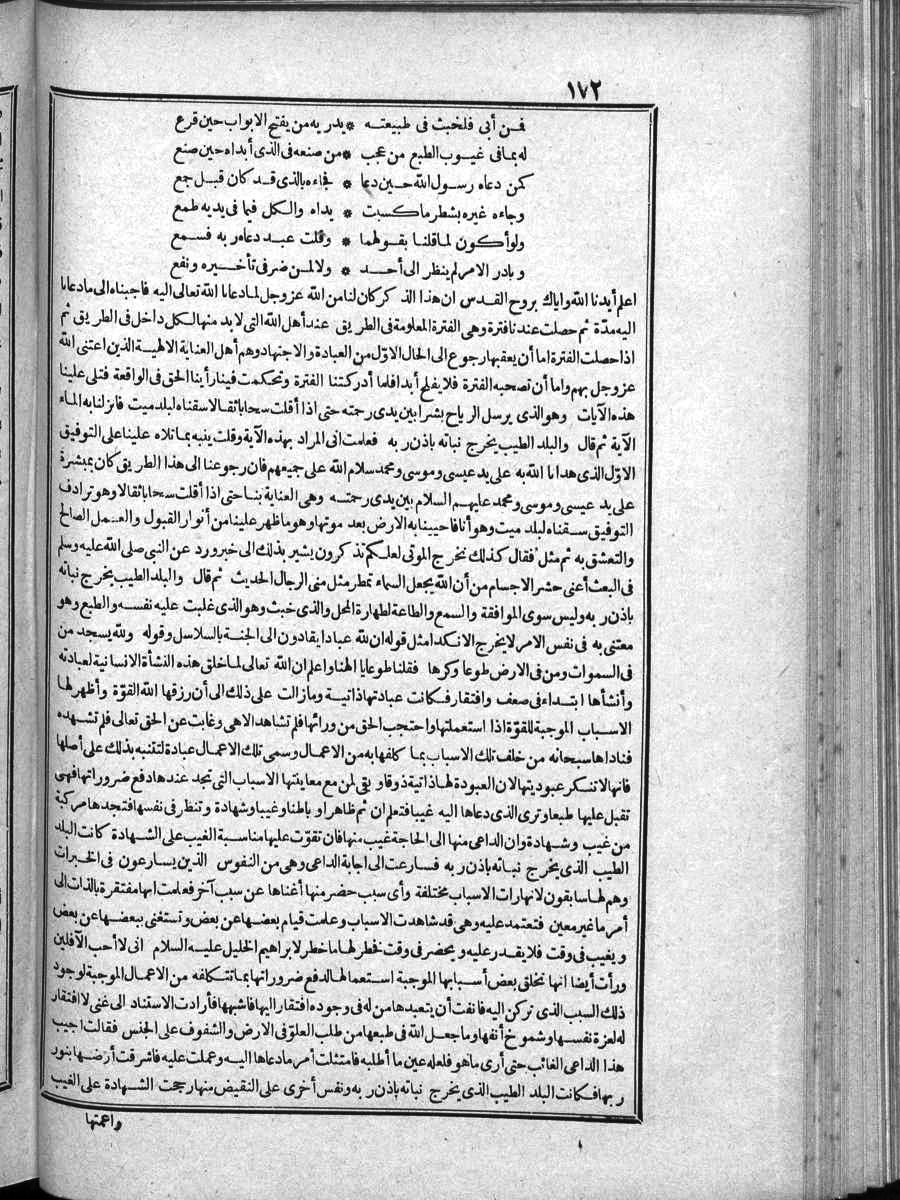 ١٧٢
فمن أبى فلخبث فى طبيعته * يدريه من يفتح الابواب حين قرع
له بما فى غيوب الطبع من عجب * من صنعه فى الذى أبداه حين صنع
كمن دعاه رسول الله حين دعا * فجاءه بالذى قد كان قبل جمع
وجاءه غيره بشطر ما كسبت * يداه والكل فيما فى يديه طمع
ولو أكون لما قلنا بقولهما * وقلت عبد دعاه ربه فسمع
وبادر الامر لم ينظر الى أحد * ولا لمن ضر فى تأخيره ونفع
اعلم أيدنا الله واياك بروح القدس ان هذا الذكر كان لنا من الله عزوجل لما دعانا الله تعالى اليه فاجبناه الى ما دعانا
اليه مدّة ثم حصلت عندنا فترة وهى الفترة المعلومة فى الطريق عند أهل الله التى لا بد منها لكل داخل فى الطريق ثم
اذا حصلت الفترة اما أن يعقبها رجوع الى الحال الاوّل من العبادة والاجتهاد وهم أهل العناية الالهية الذين اعتنى الله
عزوجل بهم واما أن تصحبه الفترة فلا يفلح أبدا فلما أدركتنا الفترة وتحكمت فينا رأينا الحق فى الواقعة فتلى علينا
هذه الآيات وهو الذى يرسل الرياح بشرا بين يدى رحمته حتى اذا أقلت سحابا ثقالا سقناه لبلد ميت فانزلنا به الماء
الآية ثم قال والبلد الطيب يخرج نباته باذن ربه فعلمت انى المراد بهذه الآية وقلت ينبه بما تلاه علينا على التوفيق
الاوّل الذى هدانا الله به على يد عيسى وموسى ومحمد سلام الله على جميعهم فان رجوعنا الى هذا الطريق كان بمبشرة
على يد عيسى وموسى ومحمد عليهم السلام بين يدى رحمته وهى العناية بنا حتى اذا أقلت سحابا ثقالا وهو ترادف
التوفيق سقناه لبلد ميت وهو أنا فاحيينا به الارض بعد موتها وهو ما ظهر علينا من أنوار القبول والعمل الصالح
والتعشق به ثم مثل فقال كذلك نخرج الموتى لعلكم تذكرون يشير بذلك الى خبر ورد عن النبى صلى الله عليه وسلم
فى البعث أعنى حشر الاجسام من أن الله يجعل السماء تمطر مثل منى الرجال الحديث ثم قال والبلد الطيب يخرج نباته
باذن ربه وليس سوى الموافقة والسمع والطاعة لطهارة المحل والذى خبث وهو الذى غلبت عليه نفسه والطبع وهو
معتنى به فى نفس الامر لا يخرج الا نكدا مثل قوله ان لله عبادا يقادون الى الجنة بالسلاسل وقوله ولله يسجد من
فى السموات ومن فى الارض طوعا وكرها فقلنا طوعا يا الهنا واعلم ان الله تعالى لما خلق هذه النشأة الانسانية لعبادته
وأنشأها ابتداء فى ضعف وافتقار فكانت عبادتها ذاتية وما زالت على ذلك الى أن رزقها الله القوّة وأظهر لها
الاسباب الموجبة للقوّة اذا استعملتها واحتجب الحق من ورائها فلم تشاهد الا هى وغابت عن الحق تعالى فلم تشهده
فناداها سبحانه من خلف تلك الاسباب بما كلفها به من الاعمال وسمى تلك الاعمال عبادة لتتنبه بذلك على أصلها
فانها لا تنكر عبوديتها لان العبودة لها ذاتية ذوقا وبقى لمن مع معاينتها الاسباب التى تجد عندها دفع ضروراتها فهى
تقبل عليها طبعا وترى الذى دعاها اليه غيبا فتعلم ان ثم ظاهرا وباطنا وغيبا وشهادة وتنظر فى نفسها فتجدها مركبة
من غيب وشهادة وان الداعى منها الى الحاجة غيب منها فان تقوّت عليها مناسبة الغيب على الشهادة كانت البلد
الطيب الذى يخرج نباته باذن ربه فسارعت الى اجابة الداعى وهى من النفوس الذين يسارعون فى الخيرات
وهم لها سابقون لانها رات الاسباب مختلفة وأى سبب حضر منها أغناها عن سبب آخر فعلمت انها مفتقرة بالذات الى
أمر ما غير معين فتعتمد عليه وهى قد شاهدت الاسباب وعلمت قيام بعضها عن بعض وتستغنى ببعضها عن بعض
ويغيب فى وقت فلا يقدر عليه ويحضر فى وقت فخطر لها ما خطر لابراهيم الخليل عليه السلام انى لا أحب الآفلين
ورأت أيضا انها تخلق بعض أسبابها الموجبة استعمالها لدفع ضروراتها بما تتكلفه من الاعمال الموجبة لوجود
ذلك السبب الذى تركن اليه فانفت أن يتعبدها من له فى وجوده افتقار اليها فاشبهها فأرادت الاستناد الى غنى لا افتقار
له لعزة نفسها وشموخ أنفها وما جعل الله فى طبعها من طلب العلوّ فى الارض والشفوف على الجنس فقالت اجيب
هذا الداعى الغائب حتى أرى ما هو فلعله عين ما أطلبه فامتثلت أمر ما دعاها اليه وعملت عليه فاشرقت أرضها بنور
ربها فكانت البلد الطيب الذى يخرج نباته باذن ربه ونفس أخرى على النقيض منها رجحت الشهادة على الغيب
واعمتها